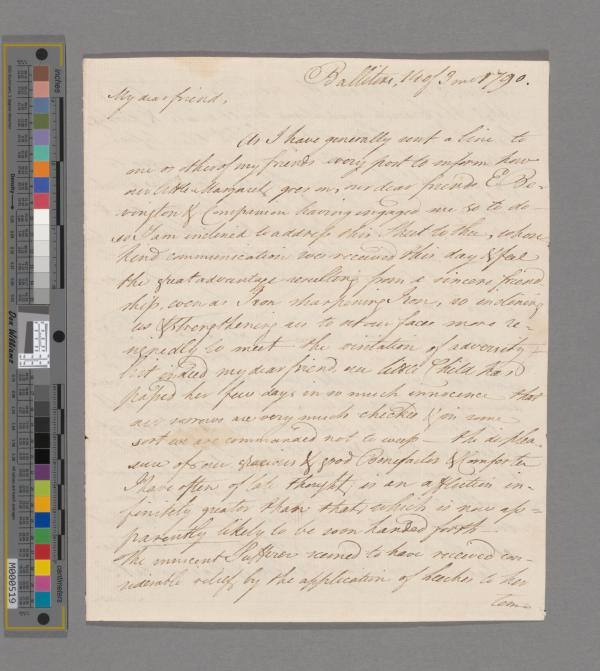 Ballitore, 14 of 3 mo 1790.
My dear friend,
As I have generally sent a line to
one or other of my friends every post to inform how
our little Margaret goes on, our dear friends E. Be-
vington & Companion having engaged me so to do
so I am inclined to address this Sheet to thee, whose
kind communication was received this day & feel
the great advantage resulting from a sincere friend
ship, even as Iron sharpening Iron, so inclining
us & strengthening us to set our faces more re-
signedly to meet the visitation of adversity
but indeed my dear friend our little Child has
passed her few days in so much innocence that
our sorrows are very much checked & in some
sort we are commanded not to weep – the displea-
sure of our gracious & good Benefactor & Comforter
I have often of late thought is an affliction in-
finitely greater than that, which is now ap-
parently likely to be soon handed forth –
the innocent Sufferer seemed to have received con-
siderable relief by the application of leeches to her
tem-
inches
centimeters
Don Williams
M000519